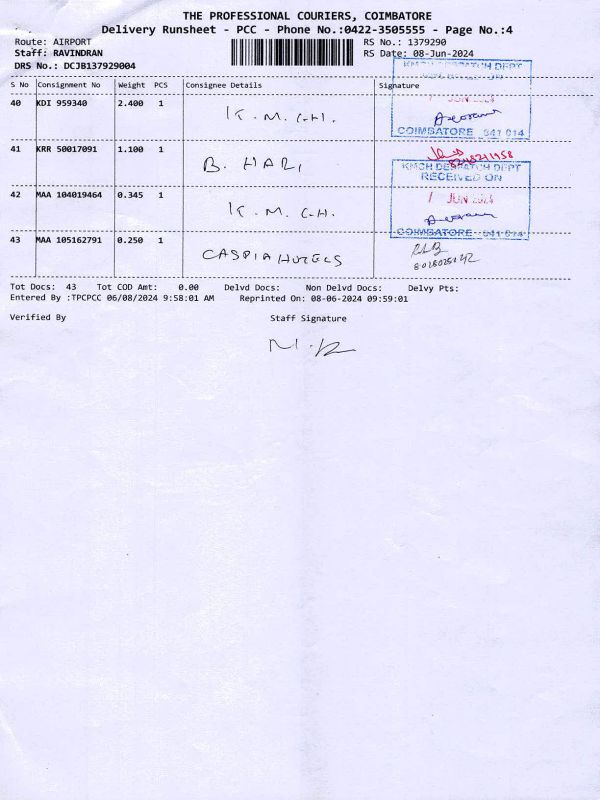 THE PROFESSIONAL COURIERS, COIMBATORE
Delivery Runsheet - PCC - Phone No.:0422-3505555 - Page No.:4
Route: AIRPORT RS No.: 1379290
Staff: RAVINDRAN RS Date: 08-Jun-2024
DRS No.: DCJB137929004
S No Consignment No Weight PCS Consignee Details Signature
KMCH DESPATCH DEPT
40 KDI 959340 2.400 1 K. M. C.H.
JUN 2024
COIMBATORE 641 014
41 KRR 50017091 1.100 1 B. HARI
KMCH DESPATCH DEPT
RECEIVED ON
42 MAA 104019464 0.345 1 K. M. C.H.
JUN 2024
COIMBATORE 641 014
43 MAA 105162791 0.250 1 CASPIA HOTELS
Tot Docs: 43 Tot COD Amt: 0.00 Delvd Docs: Non Delvd Docs: Delvy Pts:
Entered By :TPCPCC 06/08/2024 9:58:01 AM Reprinted On: 08-06-2024 09:59:01
Verified By Staff Signature